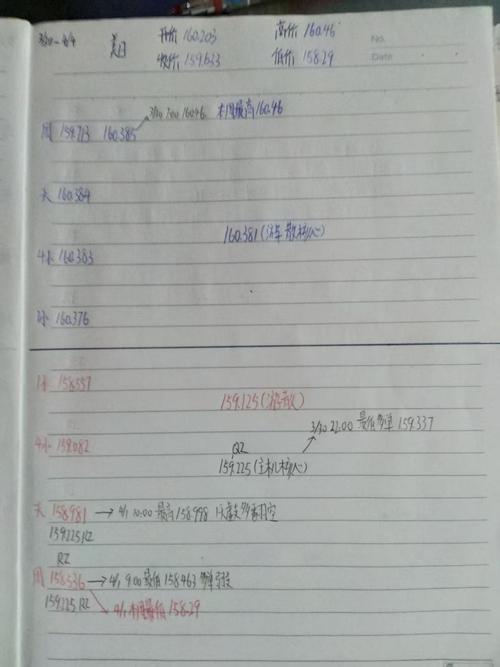 3/30-4/4 美日 开价160.203 高价160.46 No.
收价159.633 低价158.29 Date
3/30 7:00 160.46 本周最高160.46
周 159.713 160.385
天 160.384
160.381(核心)
4小 160.383
160.376
158.557
159.125
3/30 22:00 最低多单159.337
4小 159.082
QZ
159.225(主机核心)
天 158.981→4/1 10:00 最高158.998
159.225RZ
RZ
周 158.536→4/1 9:00 最低158.463 多单
159.225 RZ
4/1 本周最低158.29